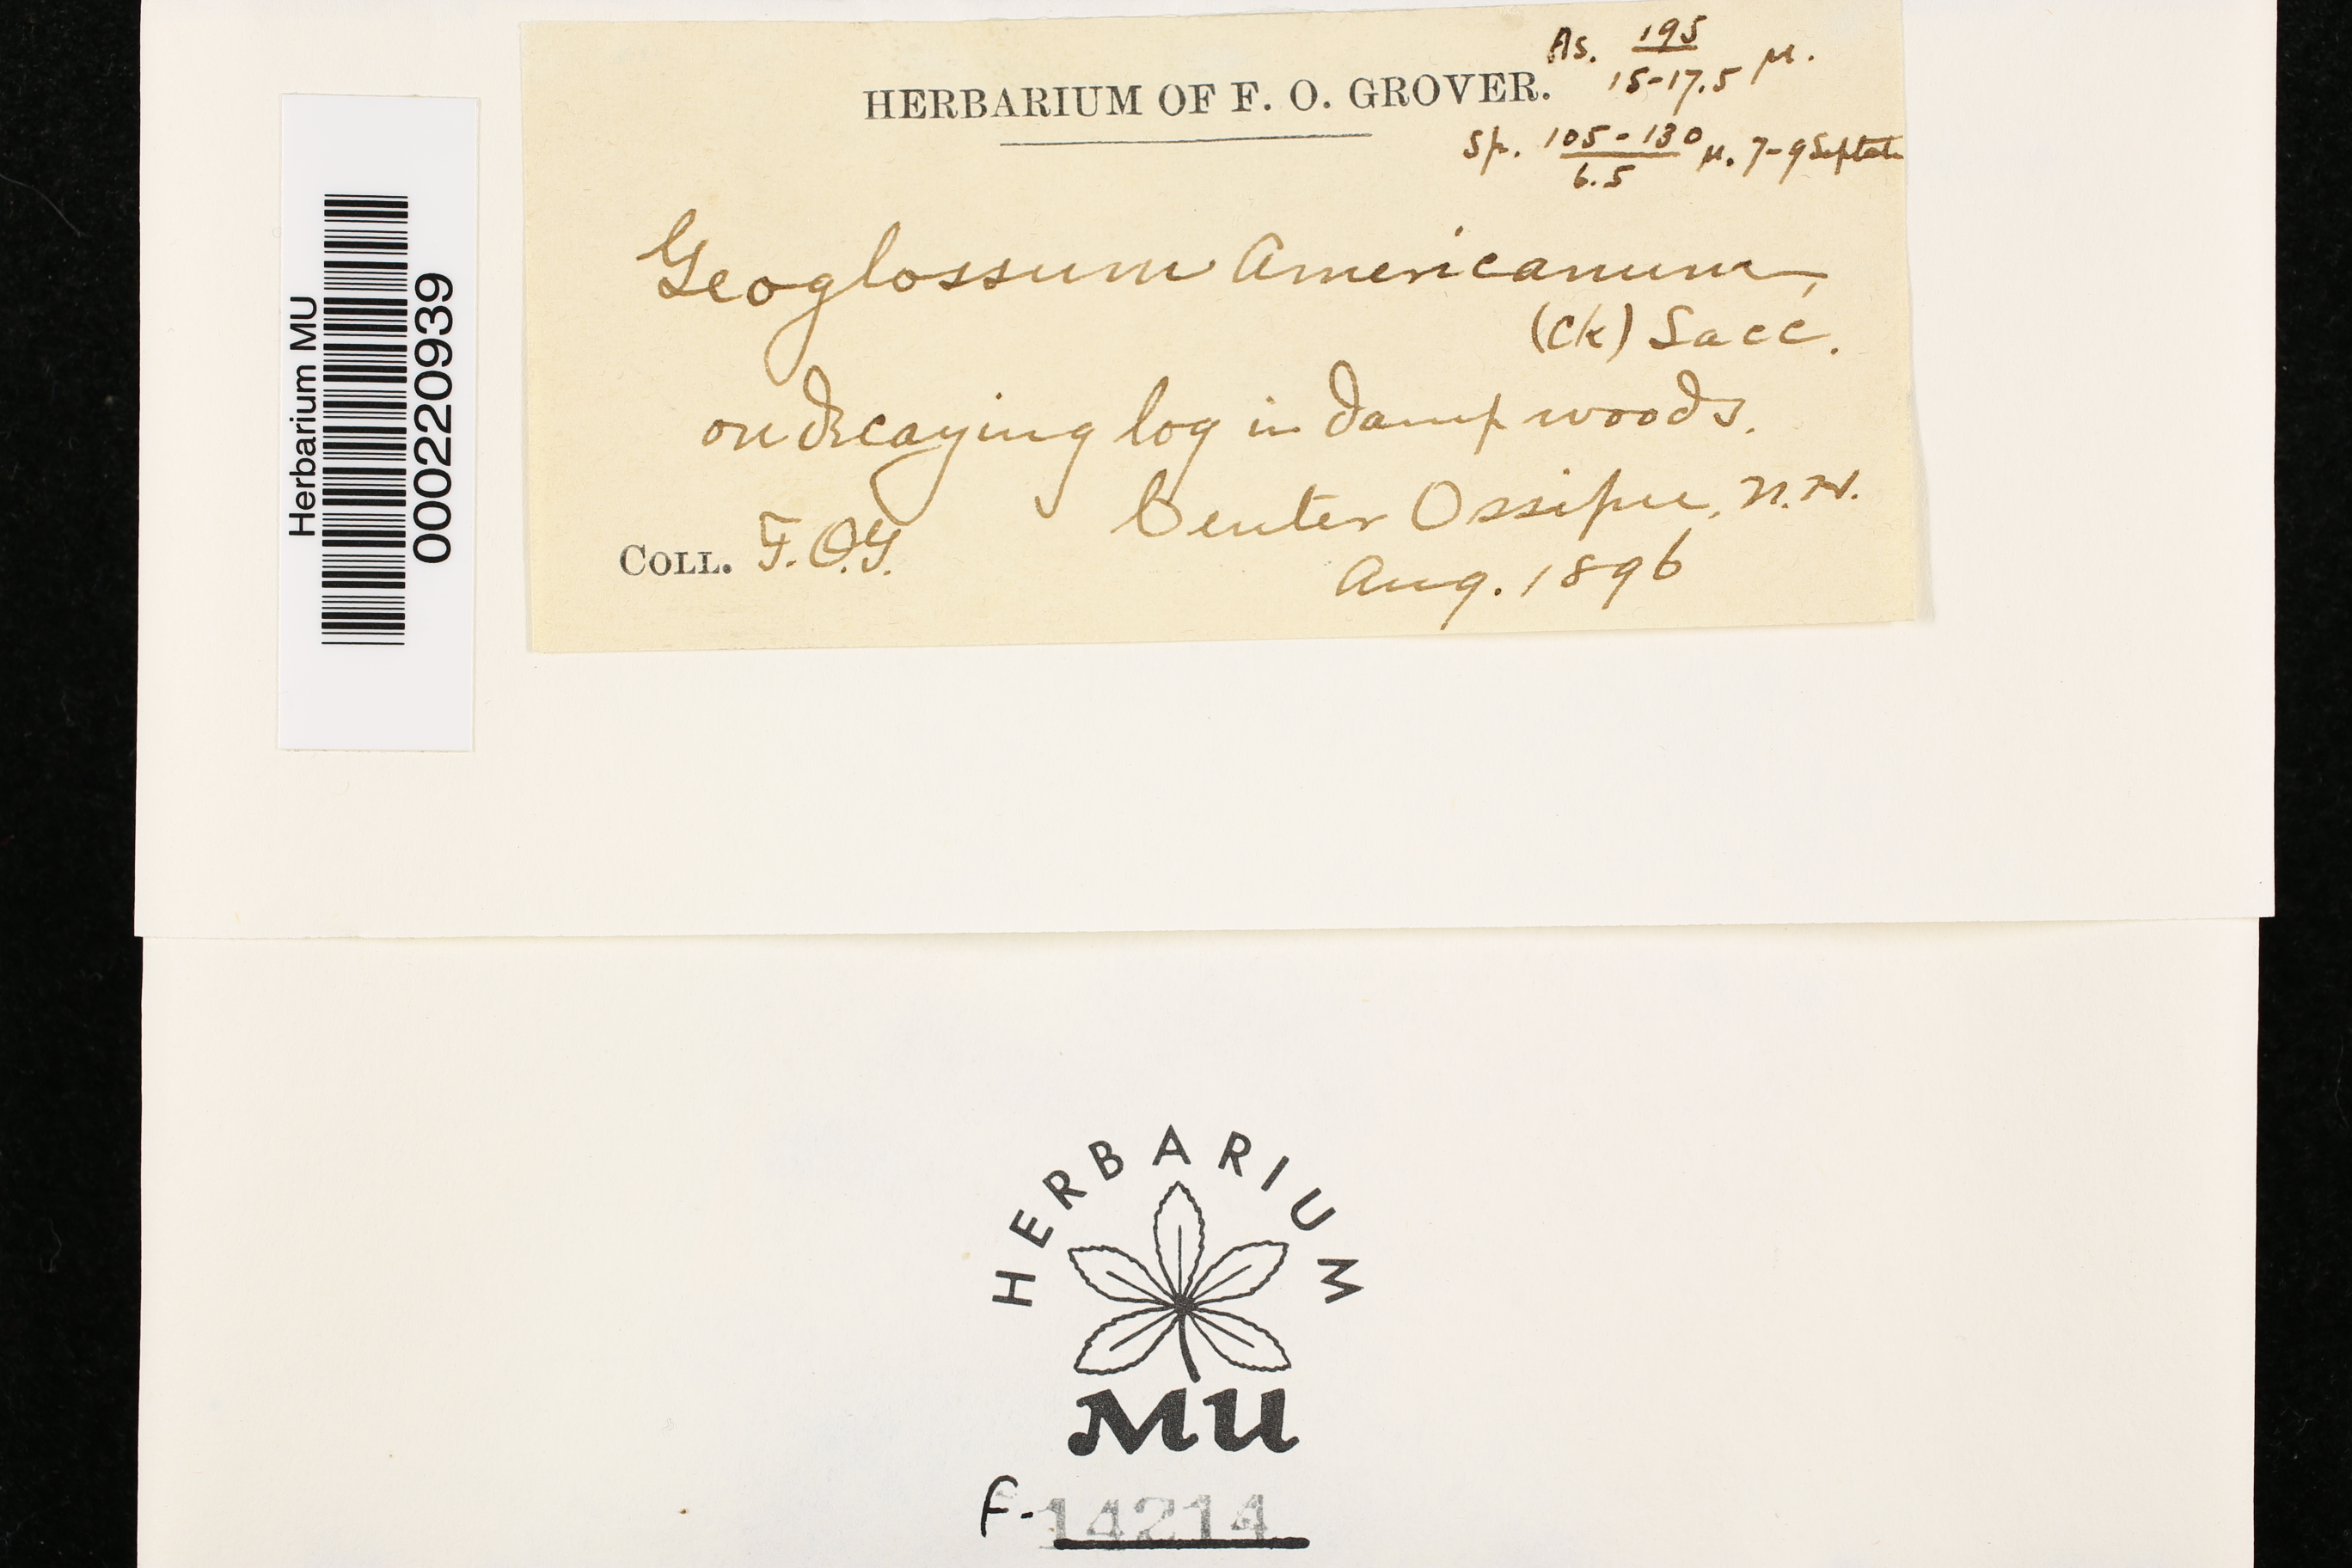 HERBARIUM OF F. O. GROVER.
As. 195 / 15-17.5 µ.
Sp. 105-130 / 6.5 µ. 7-9 Septate
Geoglossum Americanum,
(Ck) Sacc.
on decaying log in damp woods.
Center Ossipee, N.H.
COLL. F.O.G.
Aug. 1896
Herbarium MU
000220939
HERBARIUM
MU
F-14214